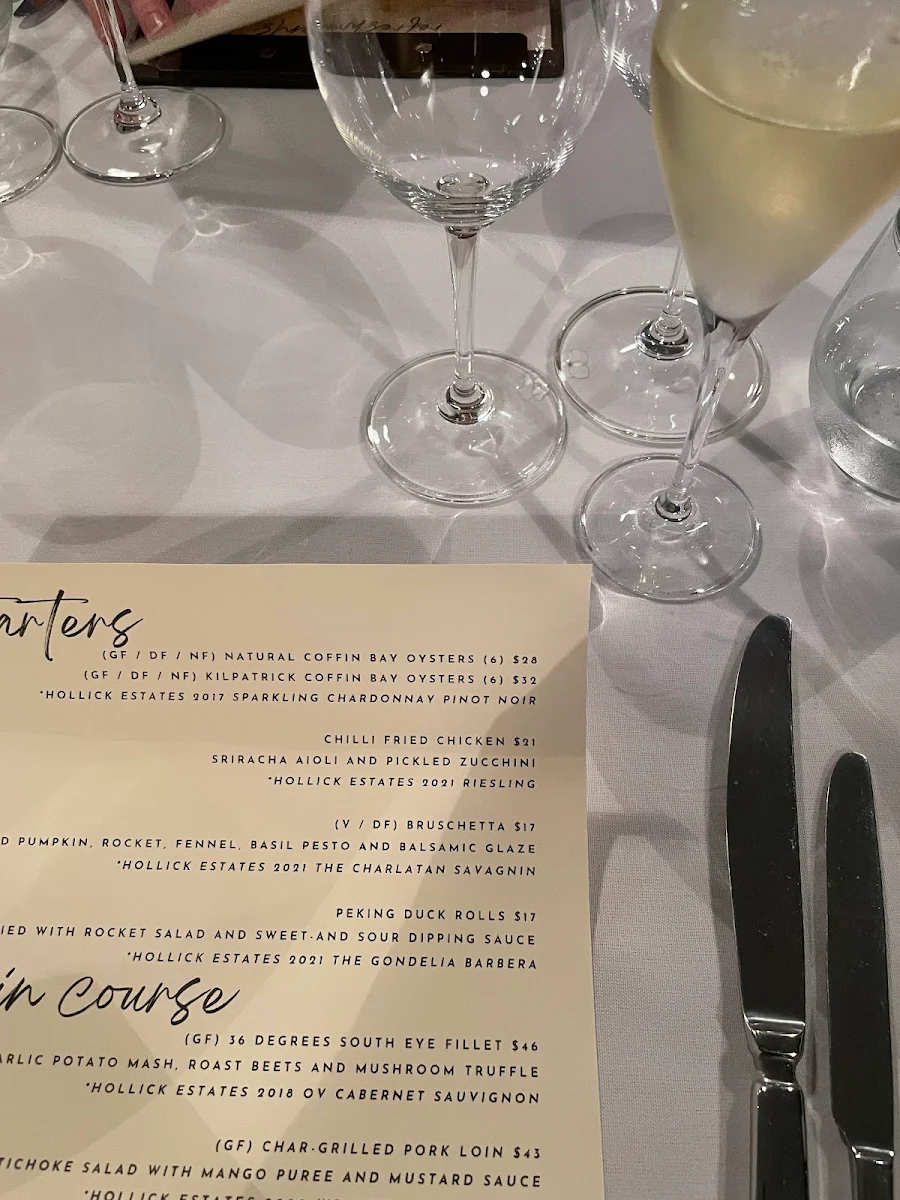 refreshments
arters
(GF / DF / NF) NATURAL COFFIN BAY OYSTERS (6) $28
(GF / DF / NF) KILPATRICK COFFIN BAY OYSTERS (6) $32
*HOLLICK ESTATES 2017 SPARKLING CHARDONNAY PINOT NOIR
CHILLI FRIED CHICKEN $21
SRIRACHA AIOLI AND PICKLED ZUCCHINI
*HOLLICK ESTATES 2021 RIESLING
(V / DF) BRUSCHETTA $17
D PUMPKIN, ROCKET, FENNEL, BASIL PESTO AND BALSAMIC GLAZE
*HOLLICK ESTATES 2021 THE CHARLATAN SAVAGNIN
PEKING DUCK ROLLS $17
IED WITH ROCKET SALAD AND SWEET-AND SOUR DIPPING SAUCE
*HOLLICK ESTATES 2021 THE GONDELIA BARBERA
in course
(GF) 36 DEGREES SOUTH EYE FILLET $46
ARLIC POTATO MASH, ROAST BEETS AND MUSHROOM TRUFFLE
*HOLLICK ESTATES 2018 OV CABERNET SAUVIGNON
(GF) CHAR-GRILLED PORK LOIN $43
TICHOKE SALAD WITH MANGO PUREE AND MUSTARD SAUCE
*HOLLICK ESTATES